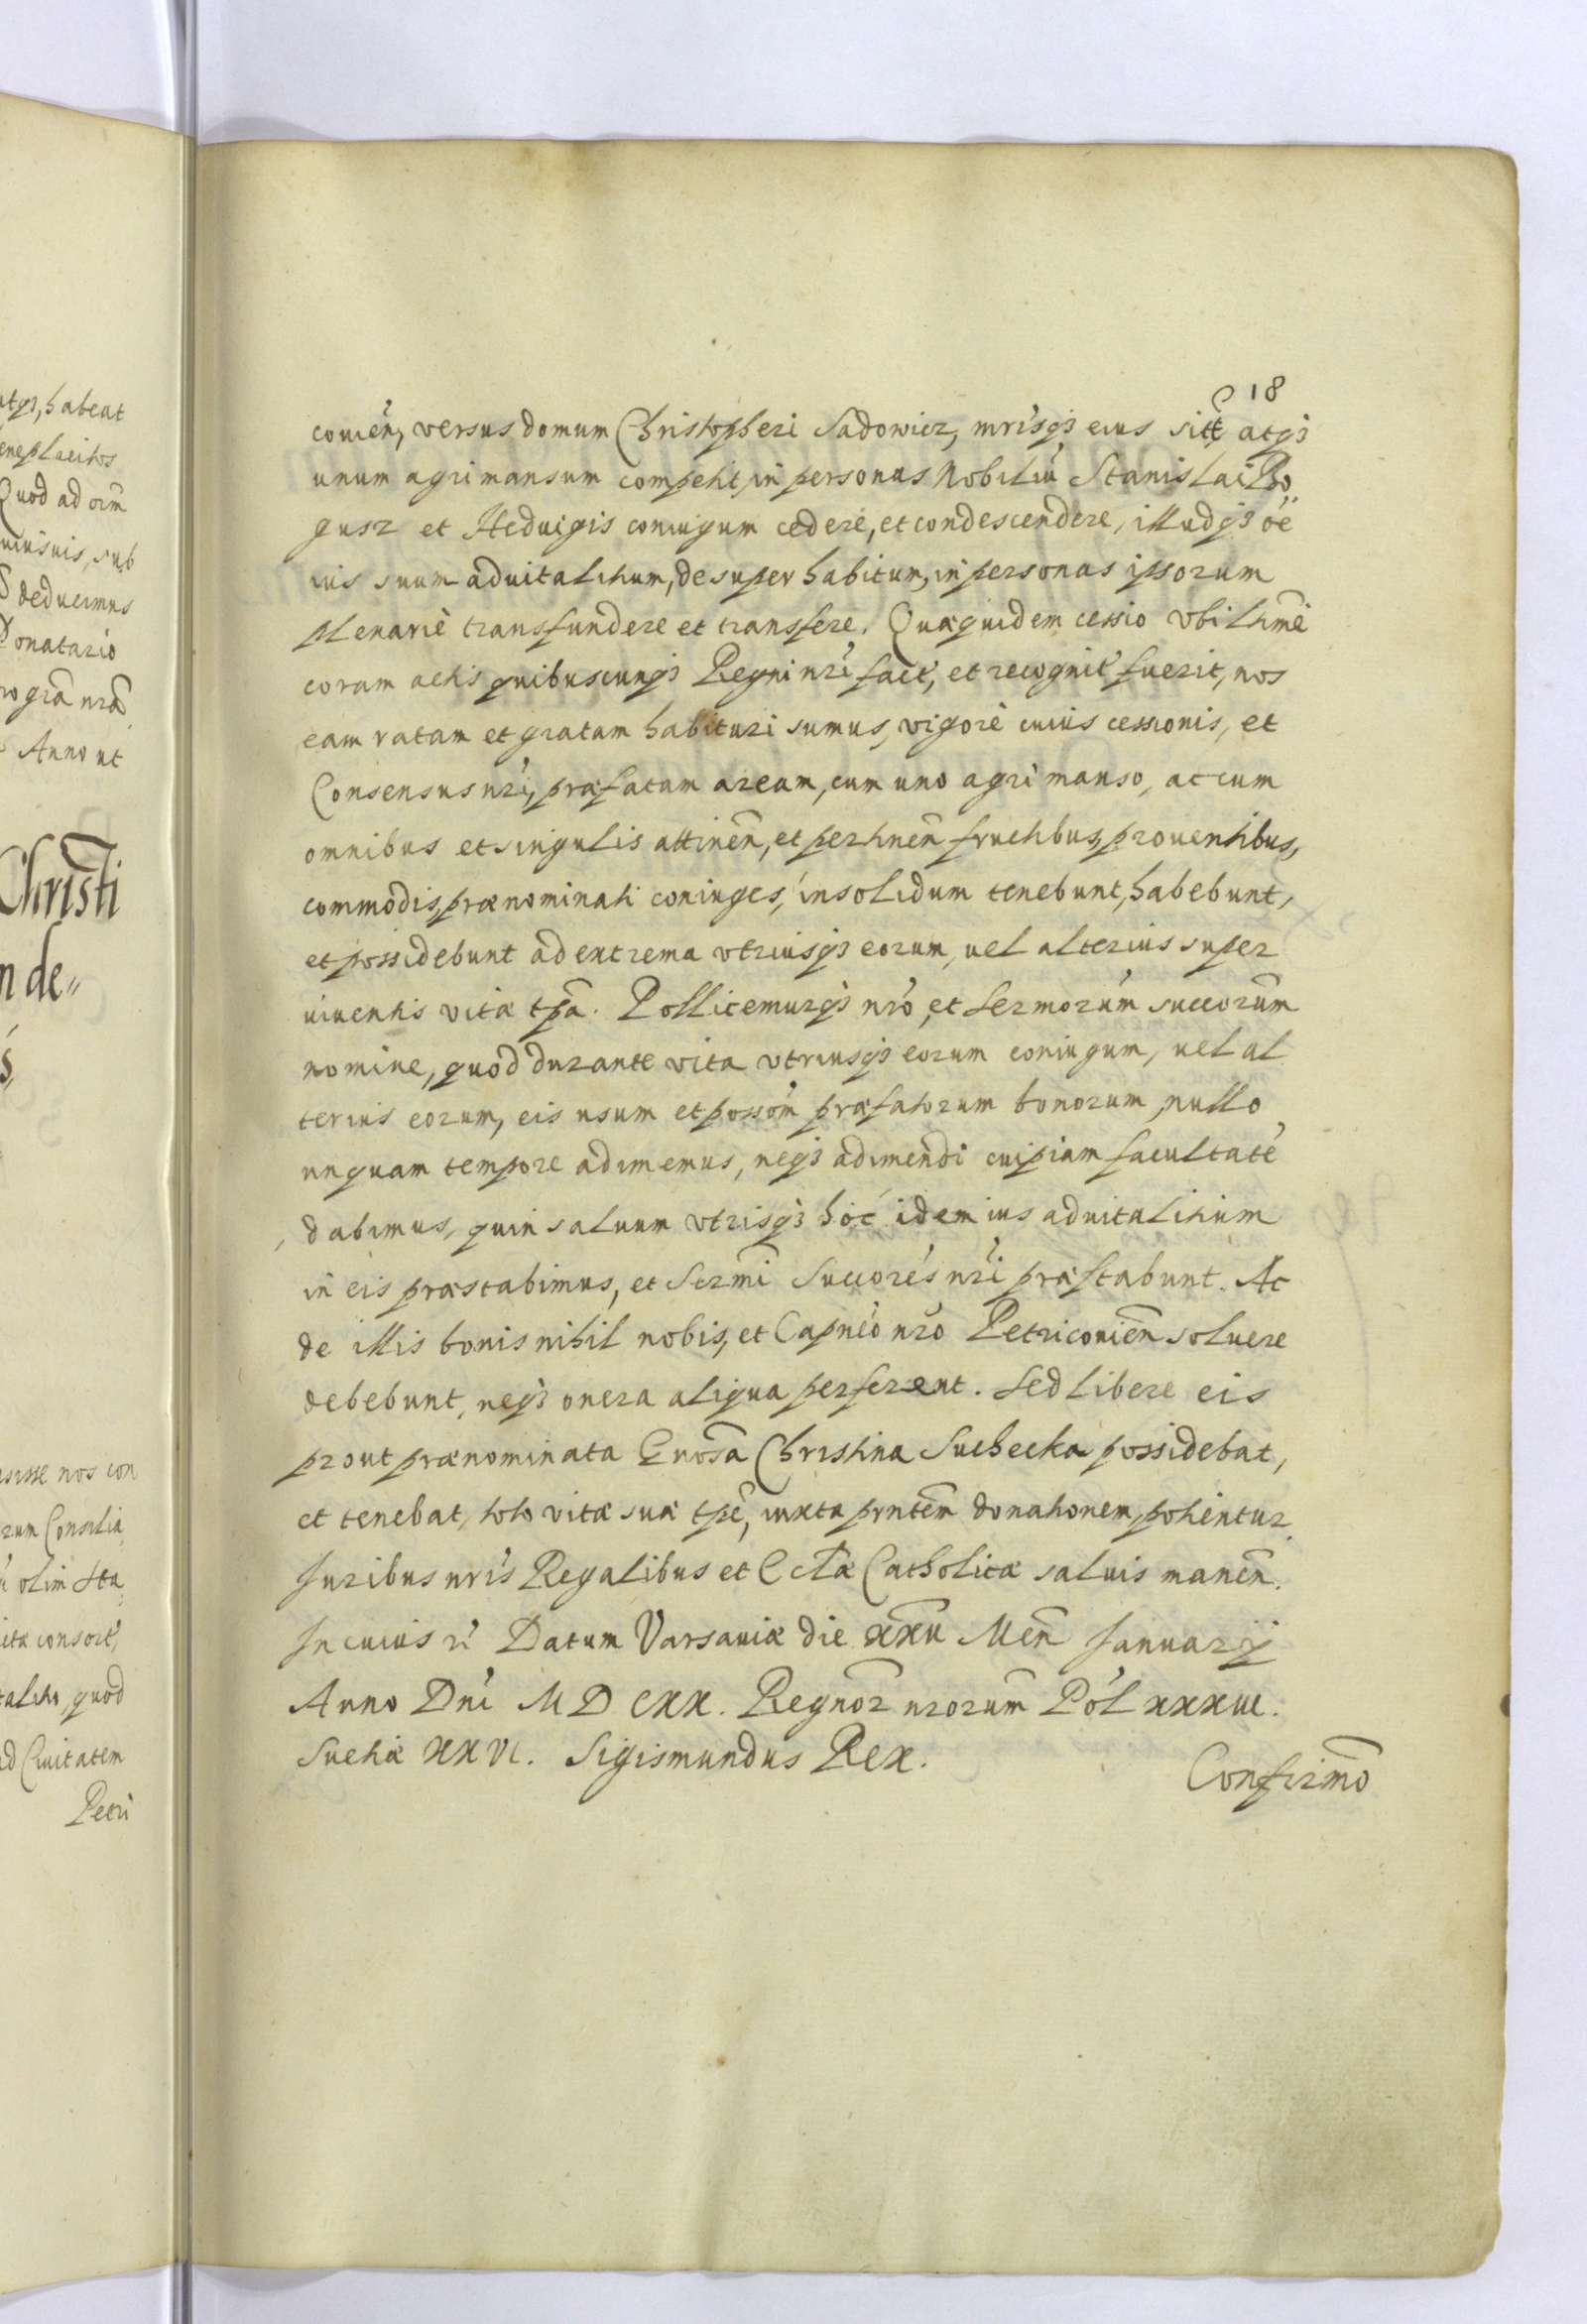 18
couień, versus domum Christopheri Sadowicz, mrisq3 eius sitt atq3
unum agri mansum competit, in personas Nobiliū Stanislai Bo„
gusz et Heduigis coniugum cedere, et condescendere, illudq3 oē
ius suum aduitalitium, desuper habitum, in personas ipsorum
plenariè transfundere et transfere. Quæquidem cessio vbi lt̄mē
coram actis quibuscunq3 Regni nrĩ fact, et recognit fuerit, nos
eam ratam et gratam habituri sumus, vigore cuius cessionis, et
Consensus nrĩ, præfatam aream, cum uno agri manso, ac cum
omnibus et singulis attinēn, et pertinēn fructibus, prouentibus,
commodis, prænominati coniuges, insolidum tenebunt, habebunt,
et possidebunt ad extrema vtriusq3 eorum, uel alterius super
uiuentis vitæ tp̃a. Pollicemurq3 nrõ, et Sermorūm succorūm
nomine, quod durante vita vtriusq3 eorum coniugum, uel al
terius eorum, eis usum et possom̃ præfatorum bonorum, nullo
unquam tempore adimemus, neq3 adimendi cuipiam facultatē
dabimus, quin saluum vtrisq3 hoc idem ius aduitalitium
in eis præstabimus, et Sermĩ Succorẽs nrĩ præstabunt. Ac
de illis bonis nihil nobis, et Capneõ nrõ Petricouiēn soluere
debebunt, neq3 onera aliqua perferent. Sed libere eis
prout prænominata Gnosã Christina Suchecka possidebat,
et tenebat, toto vitæ suæ tpẽ, iuxta prñtem donationem, potientur
Juribus nrĩs Regalibus et Ecclæ Catholicæ saluis manēn.
In cuius rĩ Datum Varsauiæ die xxv Mēn Januarij
Anno Dnĩ MDCXX. Regnoꝝ nrorūm Pol xxxiii.
Suetiæ XXVI. Sigismundus Rex.
Confirmõ
atq3, habeat
eneplacitos
Quod ad oīm
uiusuis, sub
deducimus
Donatario
ro grã nrã
Anno ut
Christi
n de„
sisse nos con
rum Consilia
olim Sta
ita consort,
talitio, quod
ad Ciuitatem
Petri